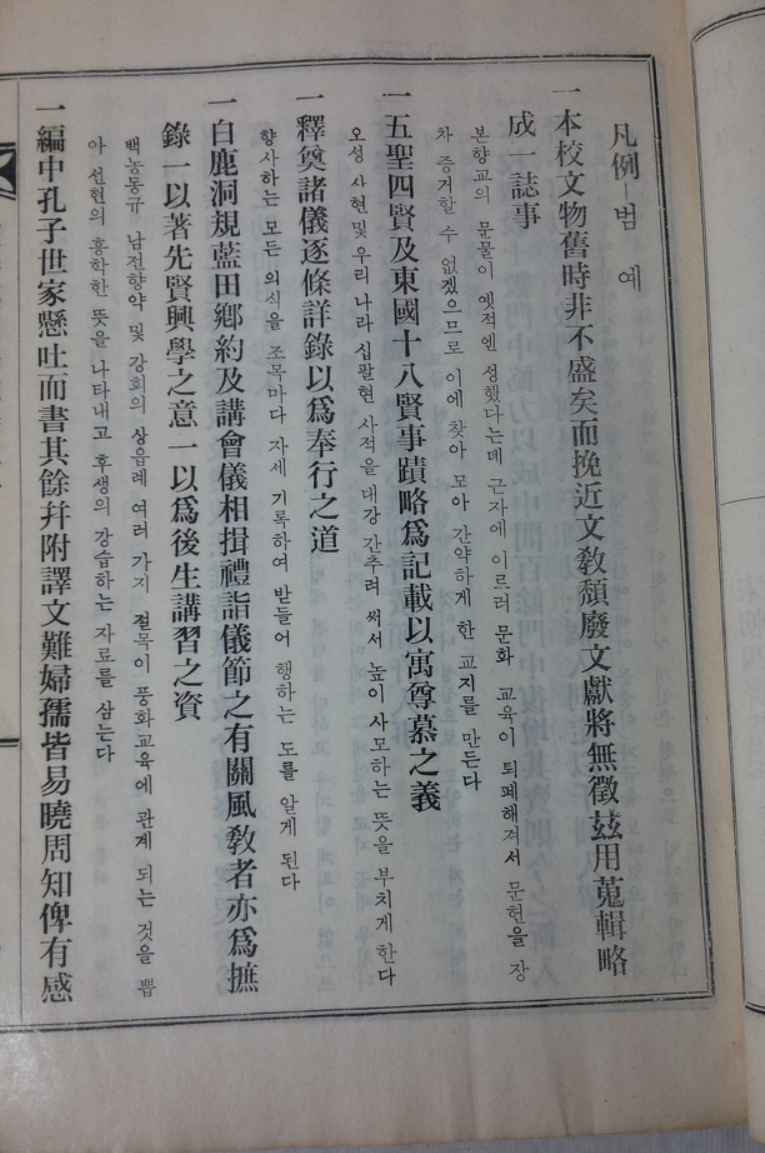 凡例-범 예
一本校文物舊時非不盛矣而挽近文敎頹廢文獻將無徵茲用蒐輯略
成一誌事
본향교의 문물이 옛적엔 성했다는데 근자에 이르러 문화 교육이 퇴폐해져서 문헌을 장
차 증거할 수 없겠으므로 이에 찾아 모아 간약하게 한 교지를 만든다
一五聖四賢及東國十八賢事蹟略爲記載以寓尊慕之義
오성 사현및 우리 나라 십팔현 사적을 대강 간추려 써서 높이사모하는 뜻을 부치게한다
一釋奠諸儀逐條詳錄以爲奉行之道
향사하는 모든 의식을 조목마다 자세 기록하여 받들어 행하는 도를 알게 된다
一白鹿洞規藍田鄕約及講會儀相揖禮諸儀節之有關風敎者亦爲摭
錄一以著先賢興學之意一以爲後生講習之資
백농동규 남전향약 및 강회의 상읍례 여러 가지 절목이 풍화교육에 관계 되는 것을 뽑
아 선현의 흥학한 뜻을 나타내고 후생의 강습하는 자료를 삼는다
一編中孔子世家懸吐而書其餘幷附譯文難婦孺皆易曉周知俾有感